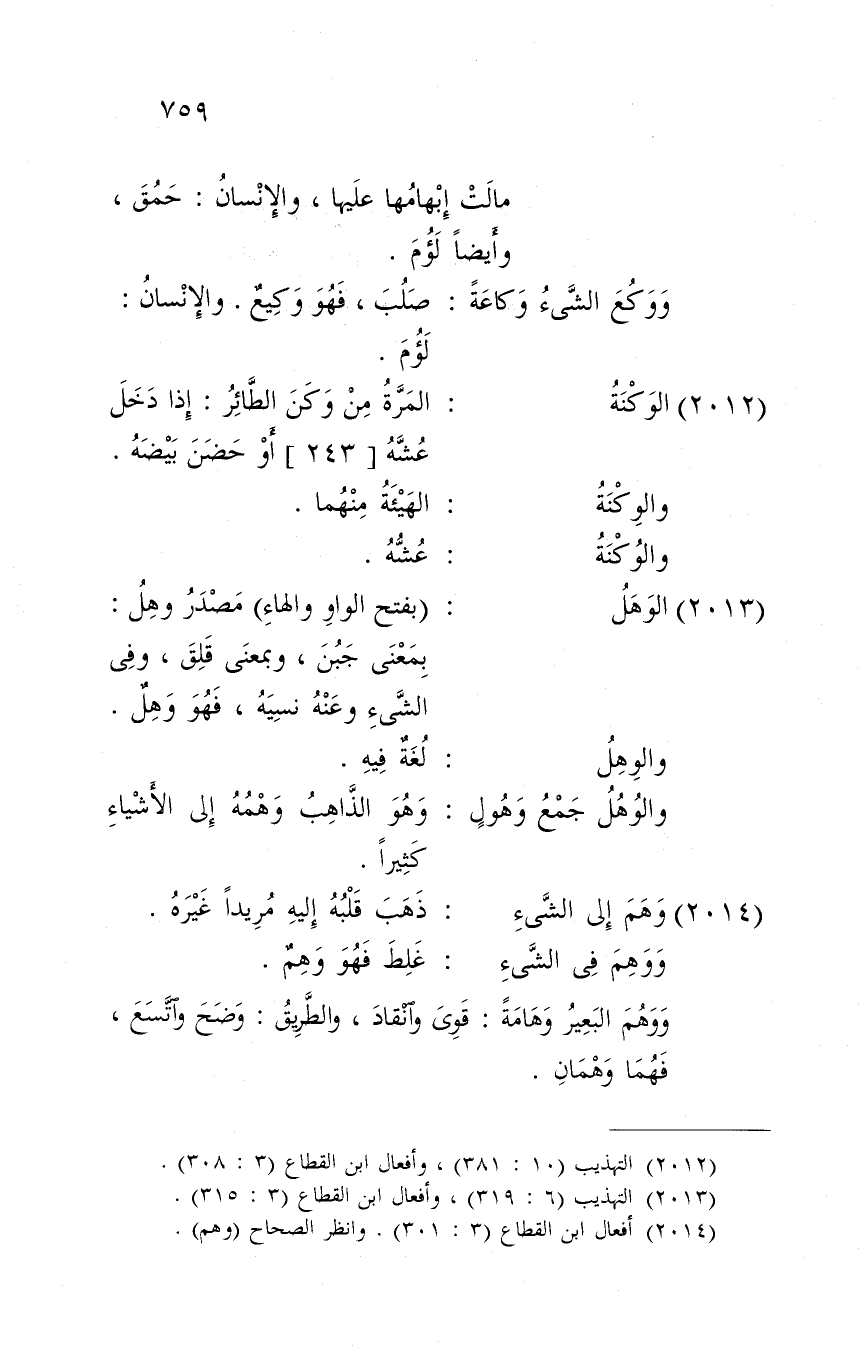 ٧٥٩
مالَتْ إِبْهامُها علَيها ، والإِنْسانُ : حَمُقَ ،
وأَيضاً لَؤُمَ .
وَوَكُعَ الشَّىءُ وَكاعَةً : صَلُبَ ، فَهُوَ وَكِيعٌ . والإِنْسانُ :
لَؤُمَ .
(٢٠١٢) الوَكْنَةُ : المَرَّةُ مِنْ وَكَنَ الطَّائِرُ : إِذا دَخَلَ
عُشَّهُ [ ٢٤٣ ] أَوْ حَضَنَ بَيْضَهُ .
والوِكْنَةُ : الهَيْئَةُ مِنْهُما .
والوُكْنَةُ : عُشُّهُ .
(٢٠١٣) الوَهَلُ : (بفتح الواوِ والهاءِ) مَصْدَرُ وهِلُ :
بِمَعْنَى جَبُنَ ، وبمعنَى قَلِقَ ، وفِى
الشَّىءِ وعَنْهُ نسِيَهُ ، فَهُوَ وَهِلٌ .
والوِهِلُ : لُغَةٌ فِيهِ .
والوُهُلُ جَمْعُ وَهُولٍ : وَهُوَ الذَّاهِبُ وَهْمُهُ إِلى الأَشْياءِ
كَثِيراً .
(٢٠١٤) وَهَمَ إِلى الشَّىءِ : ذَهَبَ قَلْبُهُ إِليهِ مُرِيداً غَيْرَهُ .
وَوَهِمَ فِى الشَّىءِ : غَلِطَ فَهُوَ وَهِمٌ .
وَوَهُمَ البَعِيرُ وَهَامَةً : قَوِىَ وٱنْقادَ ، والطَّرِيقُ : وَضَحَ وٱتَّسَعَ ،
فَهُمَا وَهْمَانِ .
(٢٠١٢) التهذيب (١٠ : ٣٨١) ، وأفعال ابن القطاع (٣ : ٣٠٨) .
(٢٠١٣) التهذيب (٦ : ٣١٩) ، وأفعال ابن القطاع (٣ : ٣١٥) .
(٢٠١٤) أفعال ابن القطاع (٣ : ٣٠١) . وانظر الصحاح (وهم) .